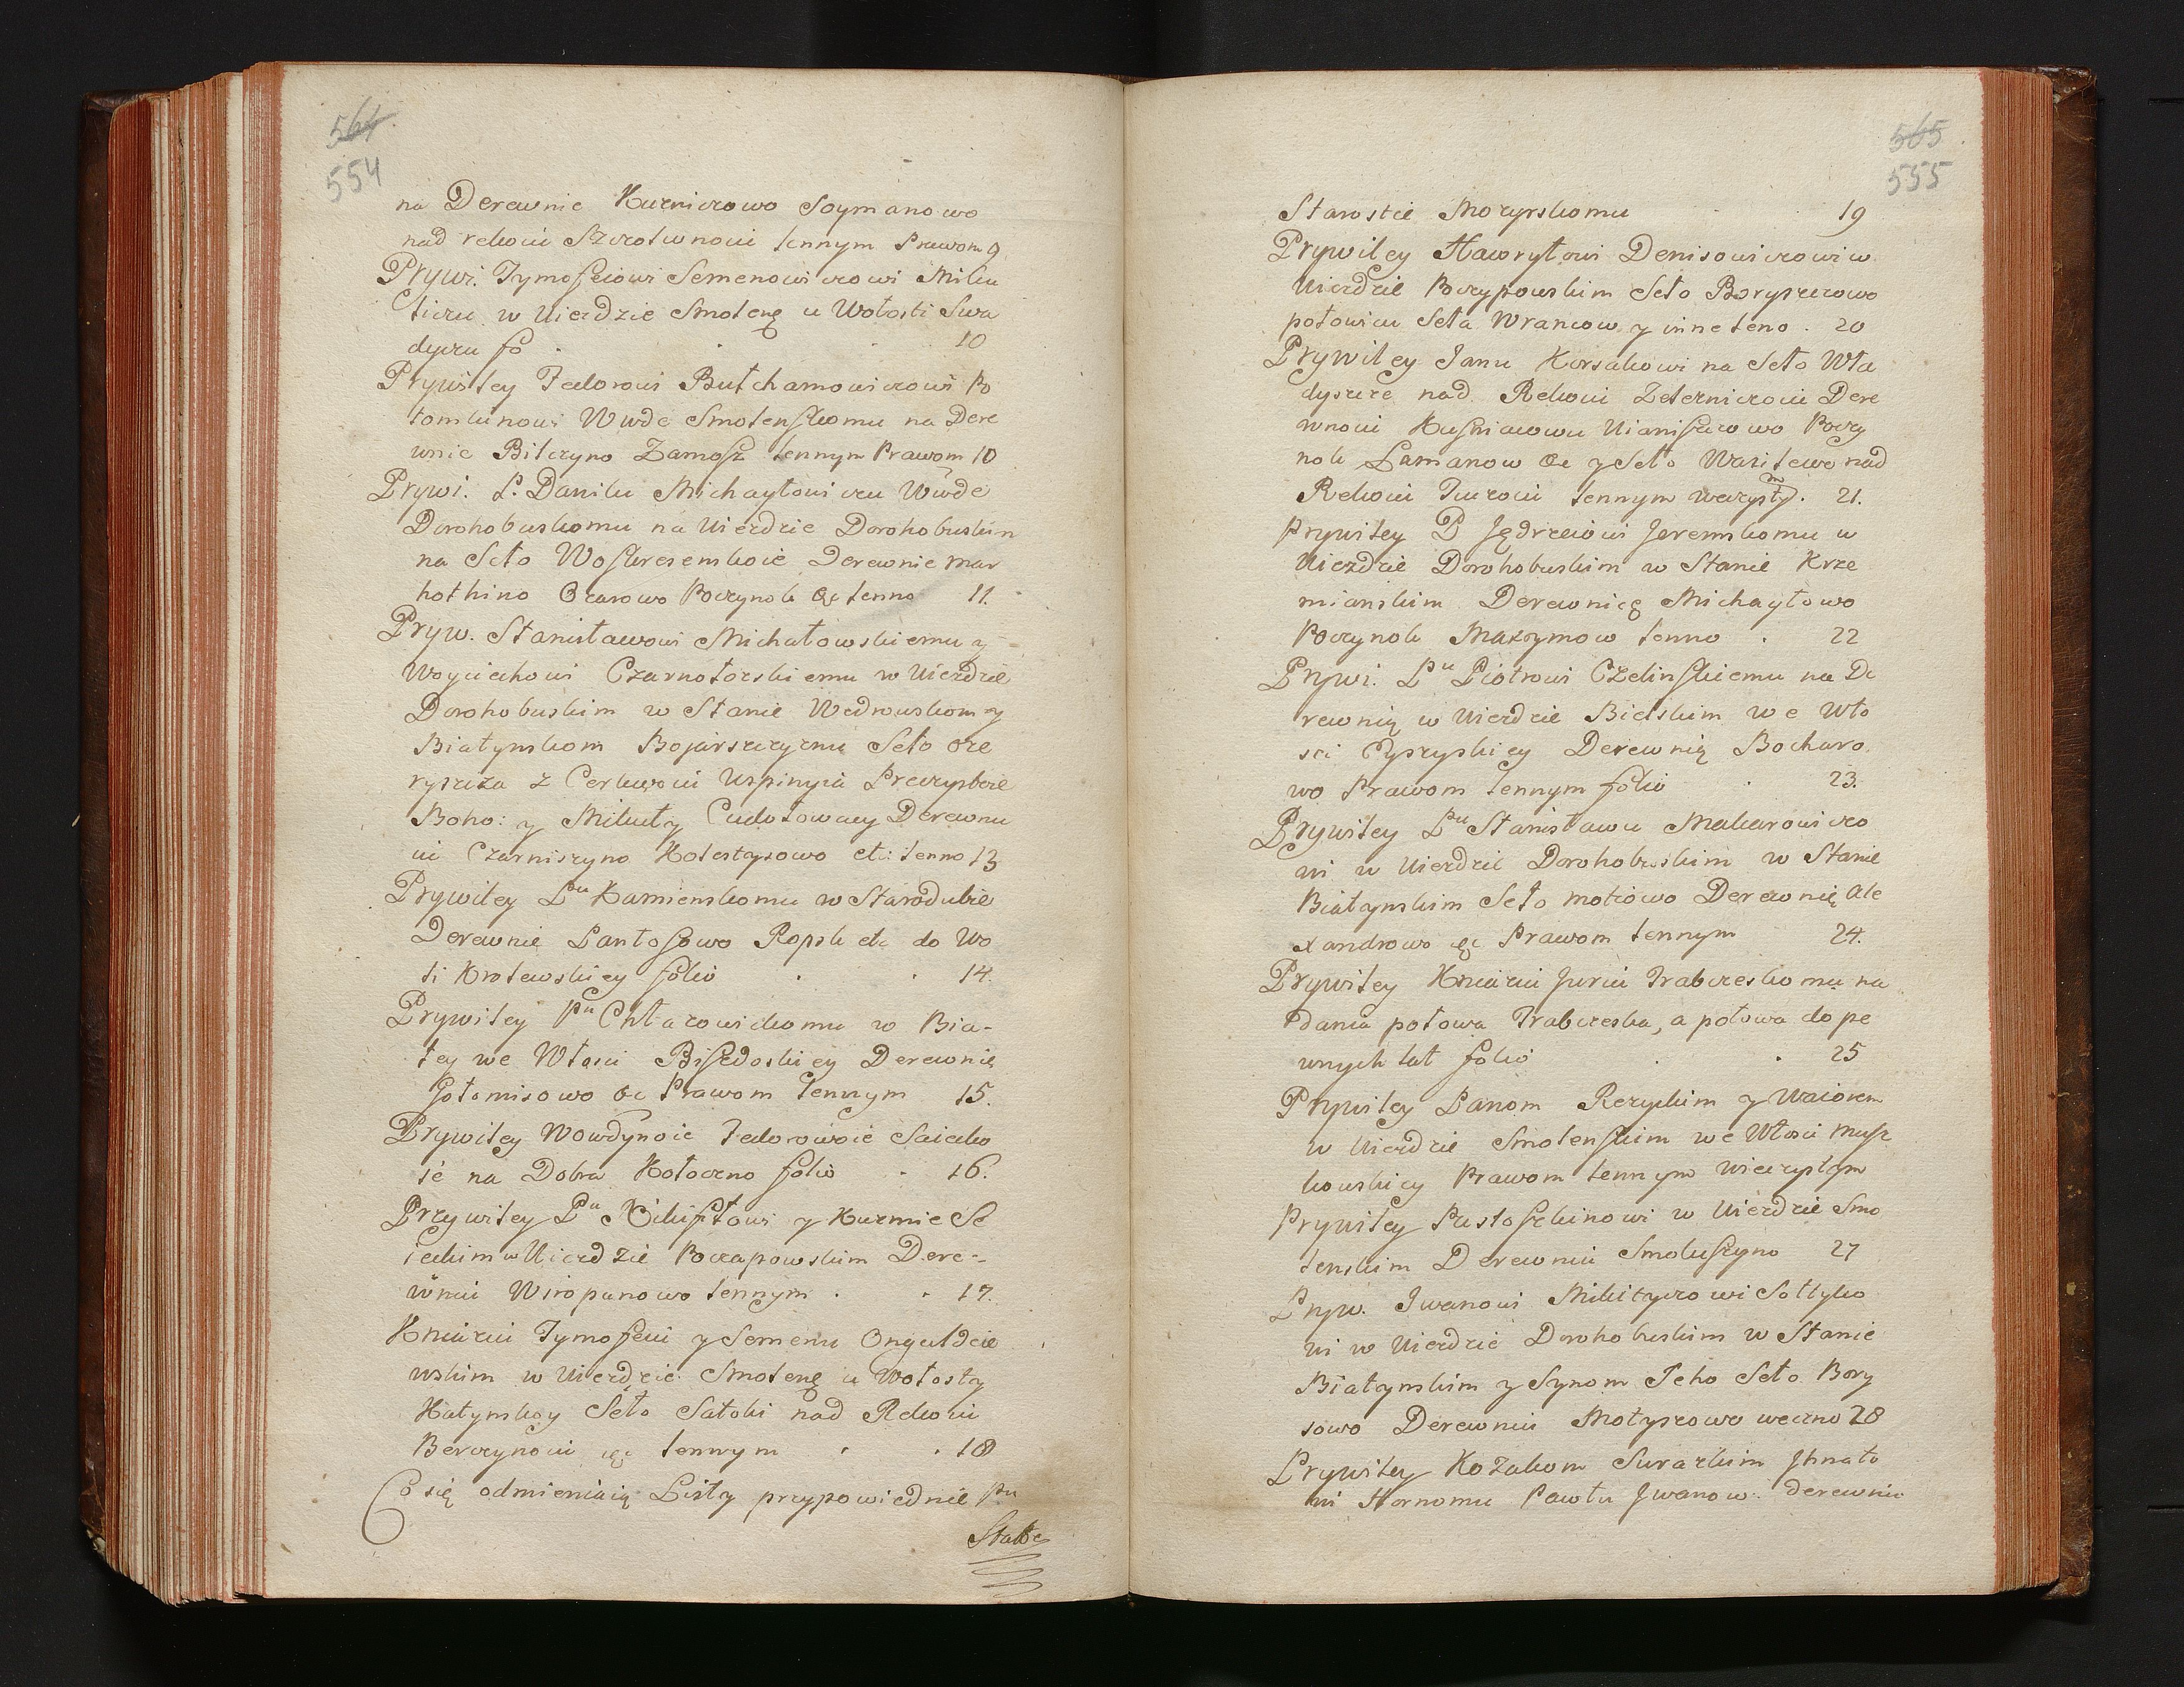 564
554
na Derewnie Kuzniczowo Soymanowo
nad rekoiu Szczotiwnoiu lennym Prawom 9
Prywi. Tymofieiowi Semenowiczowi Miku
liczu w Uiezdzie Smolenę u Wołosti Swa
dyczu fo 10
Prywiley Fedorowi Butchamowiczowi Po
tomkinowi Wwde Smolenskomu na Dere
wnie Bilczyno Zamosz lennym Prawom 10
Prywi. P. Danilu Michayłowiczu Wwde
Dorohobuskomu na Uiezdzie Dorohobuskim
na Seło Woskresenskoie Derewnie mar
hothino Ozarowo Poczynok &c lenno 11.
Pryw. Stanisławowi Michałowskiemu y
Woyciechowi Czarnotorskiemu w Uiezdzie
Dorohobuskim w Stanie Wedrouskom y
Białymskom Bojarszczyznu Seło Oze
ryszcza z Cerkwoiu Uspinyia Preczystoie
Boho: y Mikuły Cudotowcy Derewnu
iu Czarniszyno Holestysowo etc: lenno 13
Prywiley Pu Kamienskomu w Starodubie
Derewnie Lantosowo Ropsk etc do Wo
ti Krolewskiey folio 14.
Prywiley Pu Chlacowickomu w Bia-
łey we Włosci Bisedoskiey Derewnię
Gołomisowo &c Prawom lennym 15.
Prywiley Wowdynoie Fedorowoie Saiecko
ie na Dobra Kołoczno folio 16.
Przywiley Pu Nikifłowi y Kuzmie Se
ieckim w Uiezdzie Poczapowskim Dere-
wniu Wiropunowo lennym 17.
Kniaziu Tymofeiu y Semenu Onguldcie
wskim w Uiezdzie Smolenę u Wołosty
Hatynskoy Seło Satoki nad Rekoiu
Berezynoiu &c lennym 18
Co się odmieniaią Listy przypowiednie Pu
Stabc
565
555
Starostie Mozyrskomu 19
Prywiley Hawryłowi Denisowiczowi w
Uiezdzie Poczypowskim Seło Boryszczowo
połowicu Seła Wrancow y inne leno. 20
Prywiley Janu Korsakowi na Seło Wła
dyszcze nad Rekoiu Zeterniczoiu Dere
wnoiu Kusniacowu Uianiszczowo Poczy
nok Lamanow &c y Seło Wasilewo nad
Rekoiu Iuzoiu lennym weczystym. 21.
Prywiley P Jędrzeiowi Jeremskomu w
Uiezdzie Dorohobuskim w Stanie Krze
mianskim Derewnię Michayłowo
Poczynok Maxymow lenno 22
Prywi. Pu Piotrowi Czelinskiemu na De
rewnią w Uiezdzie Bielskim we Wło
sci Pyszyskiey Derewnią Bocharo
wo Prawom lennym folio 23.
Prywiley Pu Stanisławu Makarowiczo
wi w Uiezdzie Dorohobuskim w Stanie
Białymskim Seło Motiowo Derewnię Ale
xandrowo &c Prawom lennym 24.
Prywiley Kniaziu Juriu Trabczeskomu na
dania połowa Trabczeska, a połowa do pe
wnych lat folio 25
Prywiley Panom Rezyckim y Waiorem
w Uiezdzie Smolenskim we Włosci Musz
kowskiey Prawom lennym wieczystym
Prywiley Pustoszkinowi w Uiezdzie Smo
lenskim Derewniu Smoluszyno 27
Pryw. Iwanowi Mikityczowi Sołtyko
wi w Uiezdzie Dorohobuskim w Stanie
Białymskim y Synom Jeho Seło Bory
sowo Derewniu Motyszowo weczno 28
Prywiley Kozakom Surazkim Jhnato
wi Hornomu Pawłu Jwanow: derewniu